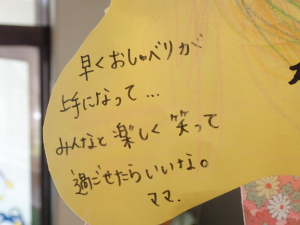 早くおしゃべりが
上手になって…
みんなと楽しく笑って
過ごせたらいいな。
ママ.